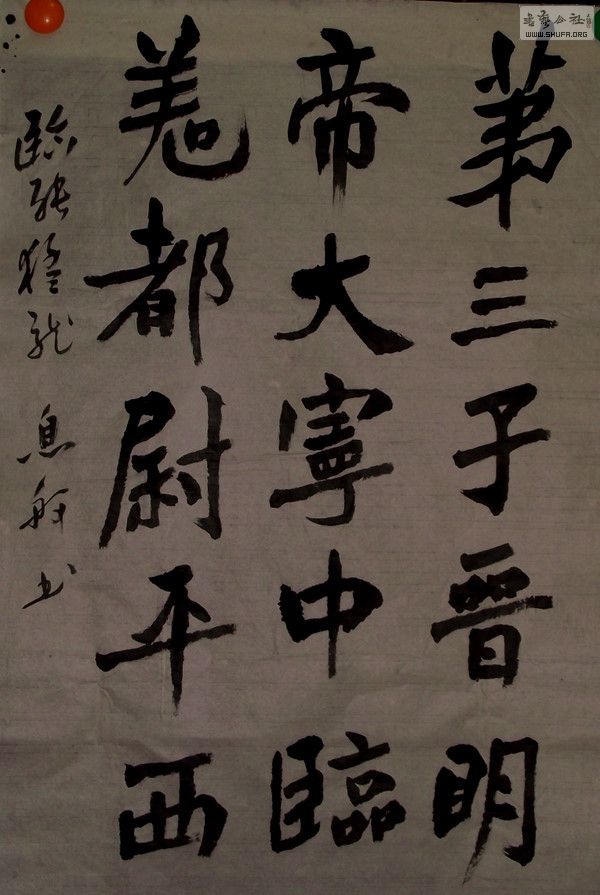 苐三子晋明
帝大寧中臨
羌都尉平西
臨張猛龍 息 书
公社
WWW.SHUFA.ORG